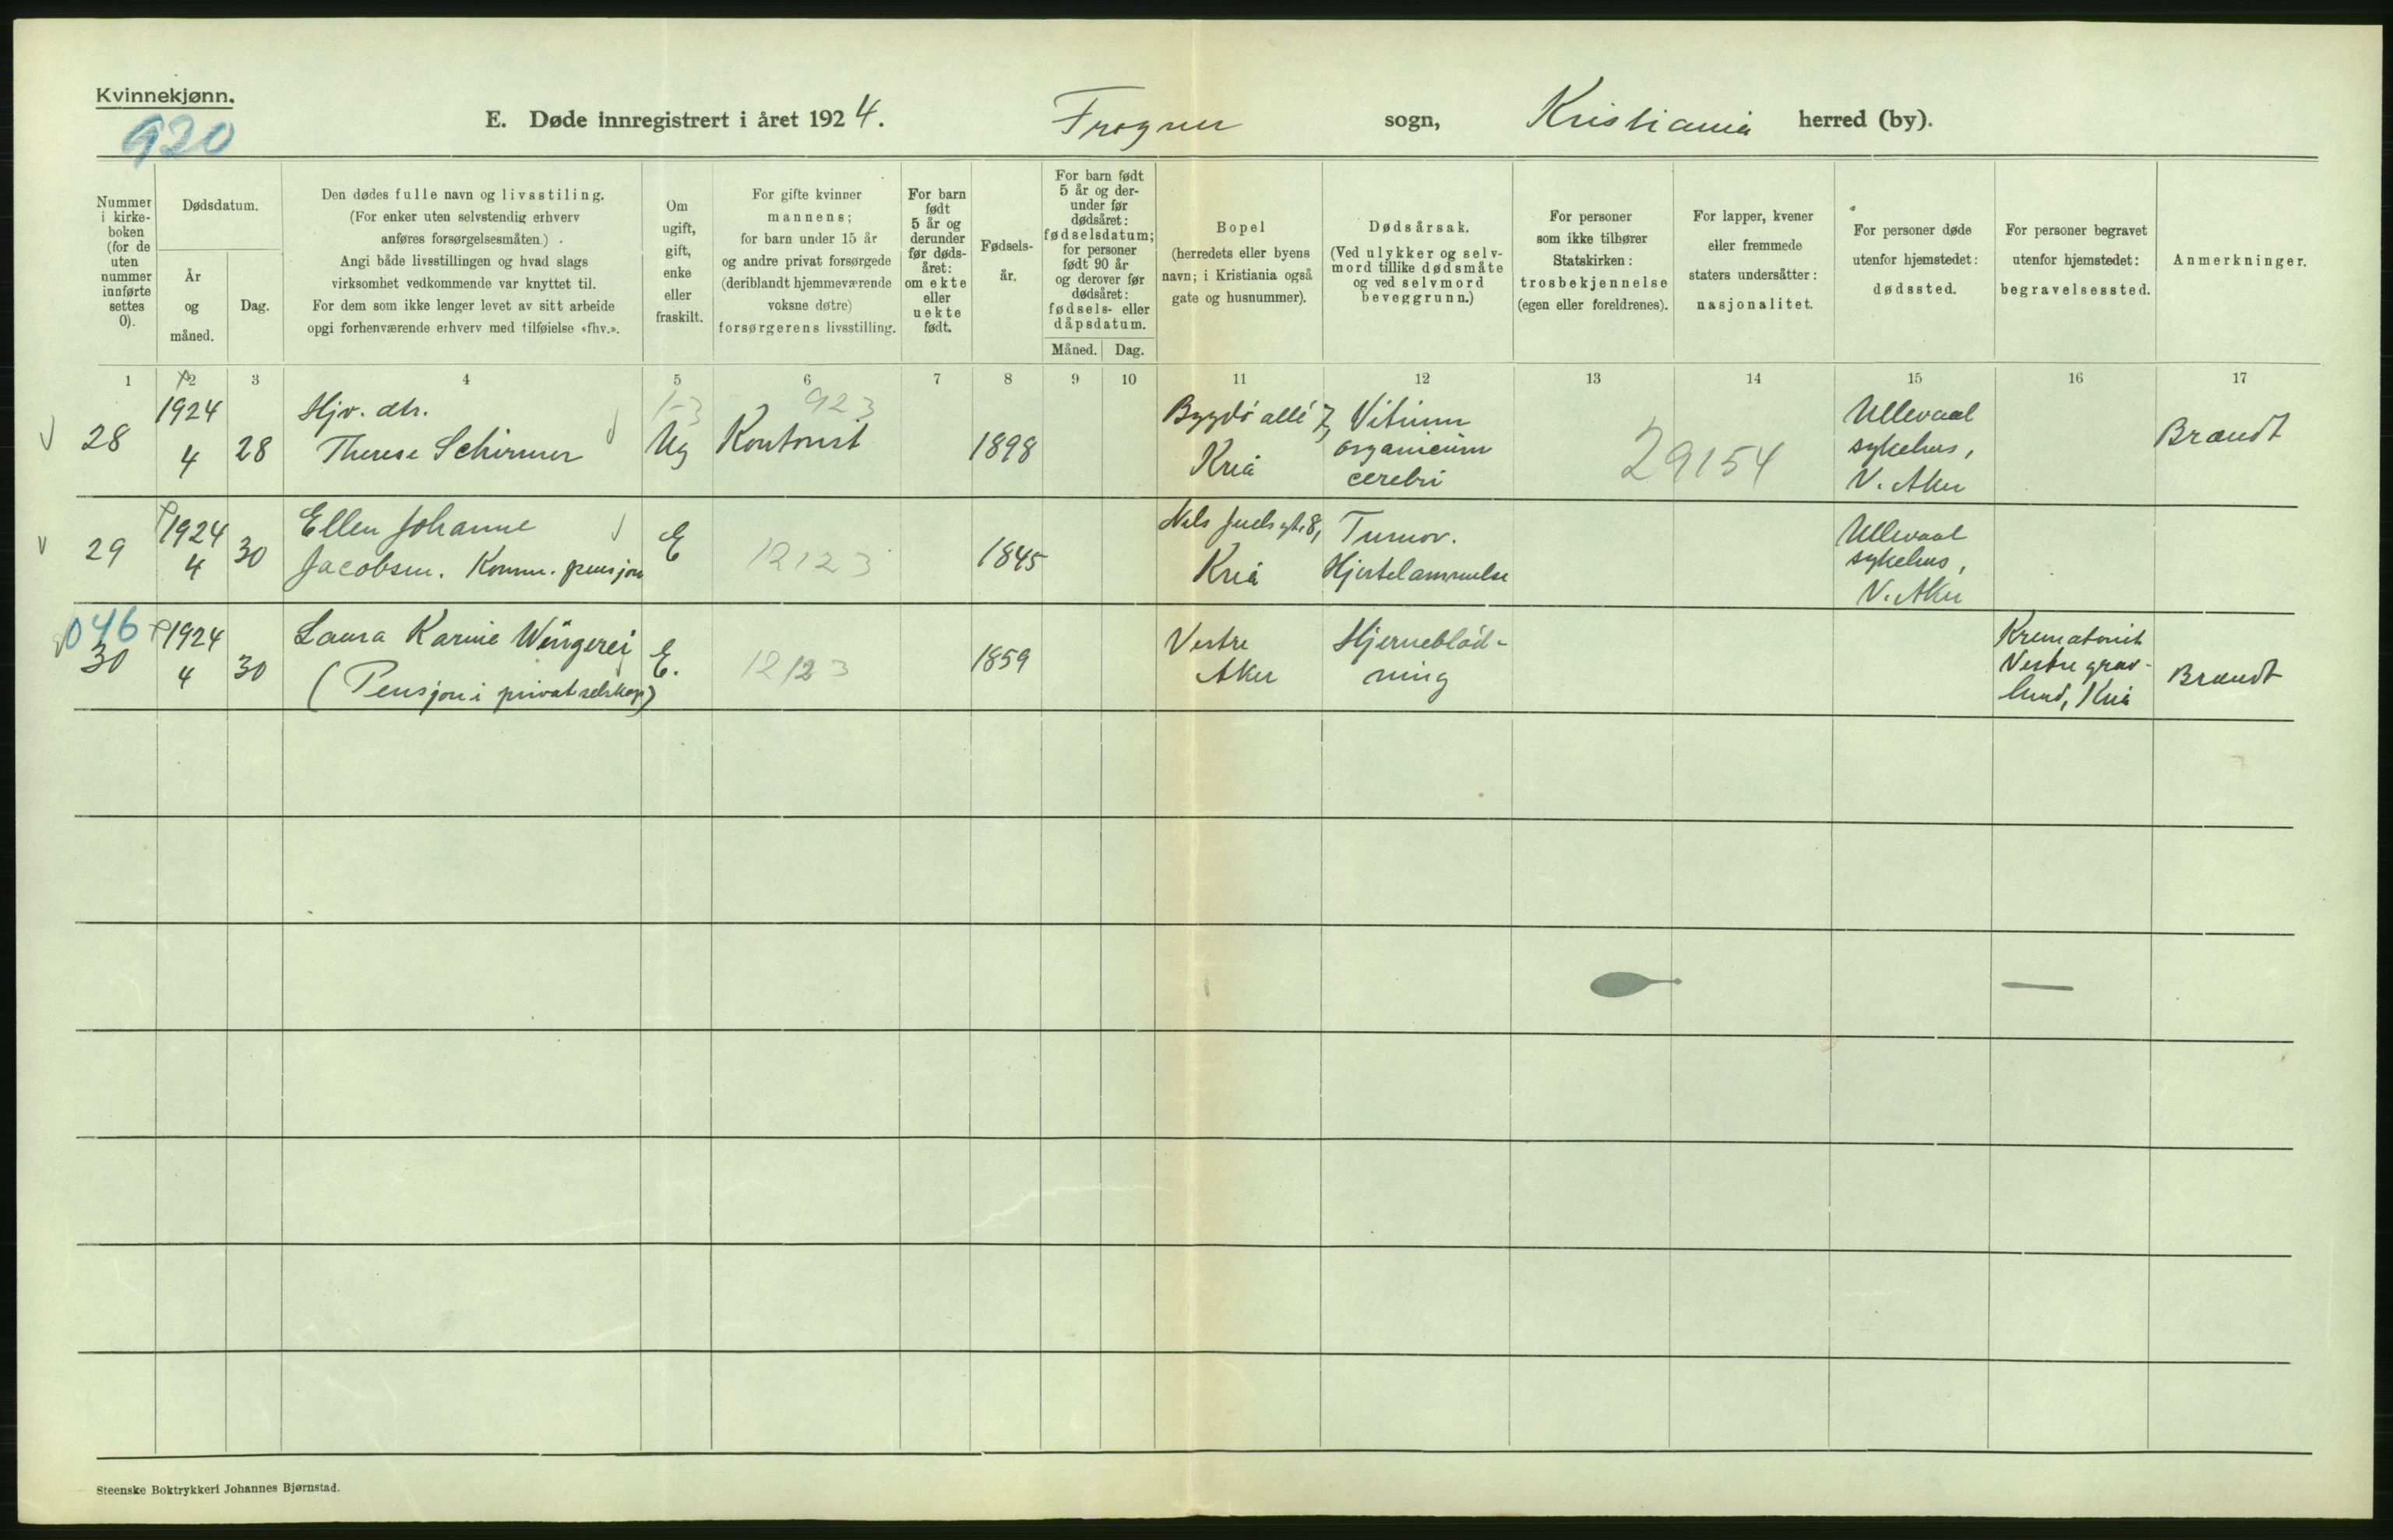 Kvinnekjønn.
920
E. Døde innregistrert i året 1924. Frogner sogn, Kristiania herred (by).
Nummer i kirke-boken (for de uten nummer innførte settes 0).
Dødsdatum.
År og måned.
Dag.
Den dødes fulle navn og livsstiling.
(For enker uten selvstendig erhverv
anføres forsørgelsesmåten.)
Angi både livsstillingen og hvad slags
virksomhet vedkommende var knyttet til.
For dem som ikke lenger levet av sitt arbeide
opgi forhenværende erhverv med tilføielse «fhv.».
Om
ugift,
gift,
enke
eller
fraskilt.
For gifte kvinner
mannens;
for barn under 15 år
og andre privat forsørgede
(deriblandt hjemmeværende
voksne døtre)
forsørgerens livsstilling.
For barn
født
5 år og
derunder
før døds-
året:
om ekte
eller
uekte
født.
Fødsels-
år.
For barn født
5 år og der-
under før
dødsåret:
fødselsdatum;
for personer
født 90 år
og derover før
dødsåret:
fødsels- eller
dåpsdatum.
Måned. Dag.
Bopel
(herredets eller byens
navn; i Kristiania også
gate og husnummer).
Dødsårsak.
(Ved ulykker og selv-
mord tillike dødsmåte
og ved selvmord
beveggrunn.)
For personer
som ikke tilhører
Statskirken:
trosbekjennelse
(egen eller foreldrenes).
For lapper, kvener
eller fremmede
staters undersåtter:
nasjonalitet.
For personer døde
utenfor hjemstedet:
dødssted.
For personer begravet
utenfor hjemstedet:
begravelsessted.
Anmerkninger.
1 2 3 4 5 6 7 8 9 10 11 12 13 14 15 16 17
28
1924
4
28
Hjv. dtr.
Therese Schirmer
Ug
923
Kontorist
1898
Bygdö allé 7,
Kria
Vitium
organicum
cerebri
29154
Ullevaal
sykehus,
V. Aker
Brandt
29
1924
4
30
Ellen Johanne
Jacobsen. Komm. pensjon
E
12123
1845
Niels Juels gt. 8,
Kria
Tumor.
Hjertelammelse
Ullevaal
sykehus,
V. Aker
046
30
1924
4
30
Laura Karine
(Pensjon i privat selskap)
E.
12123
1859
Vestre
Aker
Hjerneblöd-
ning
Krematoriet
Vestre grav-
lund, Kria
Brandt
Steenske Boktrykkeri Johannes Bjørnstad.